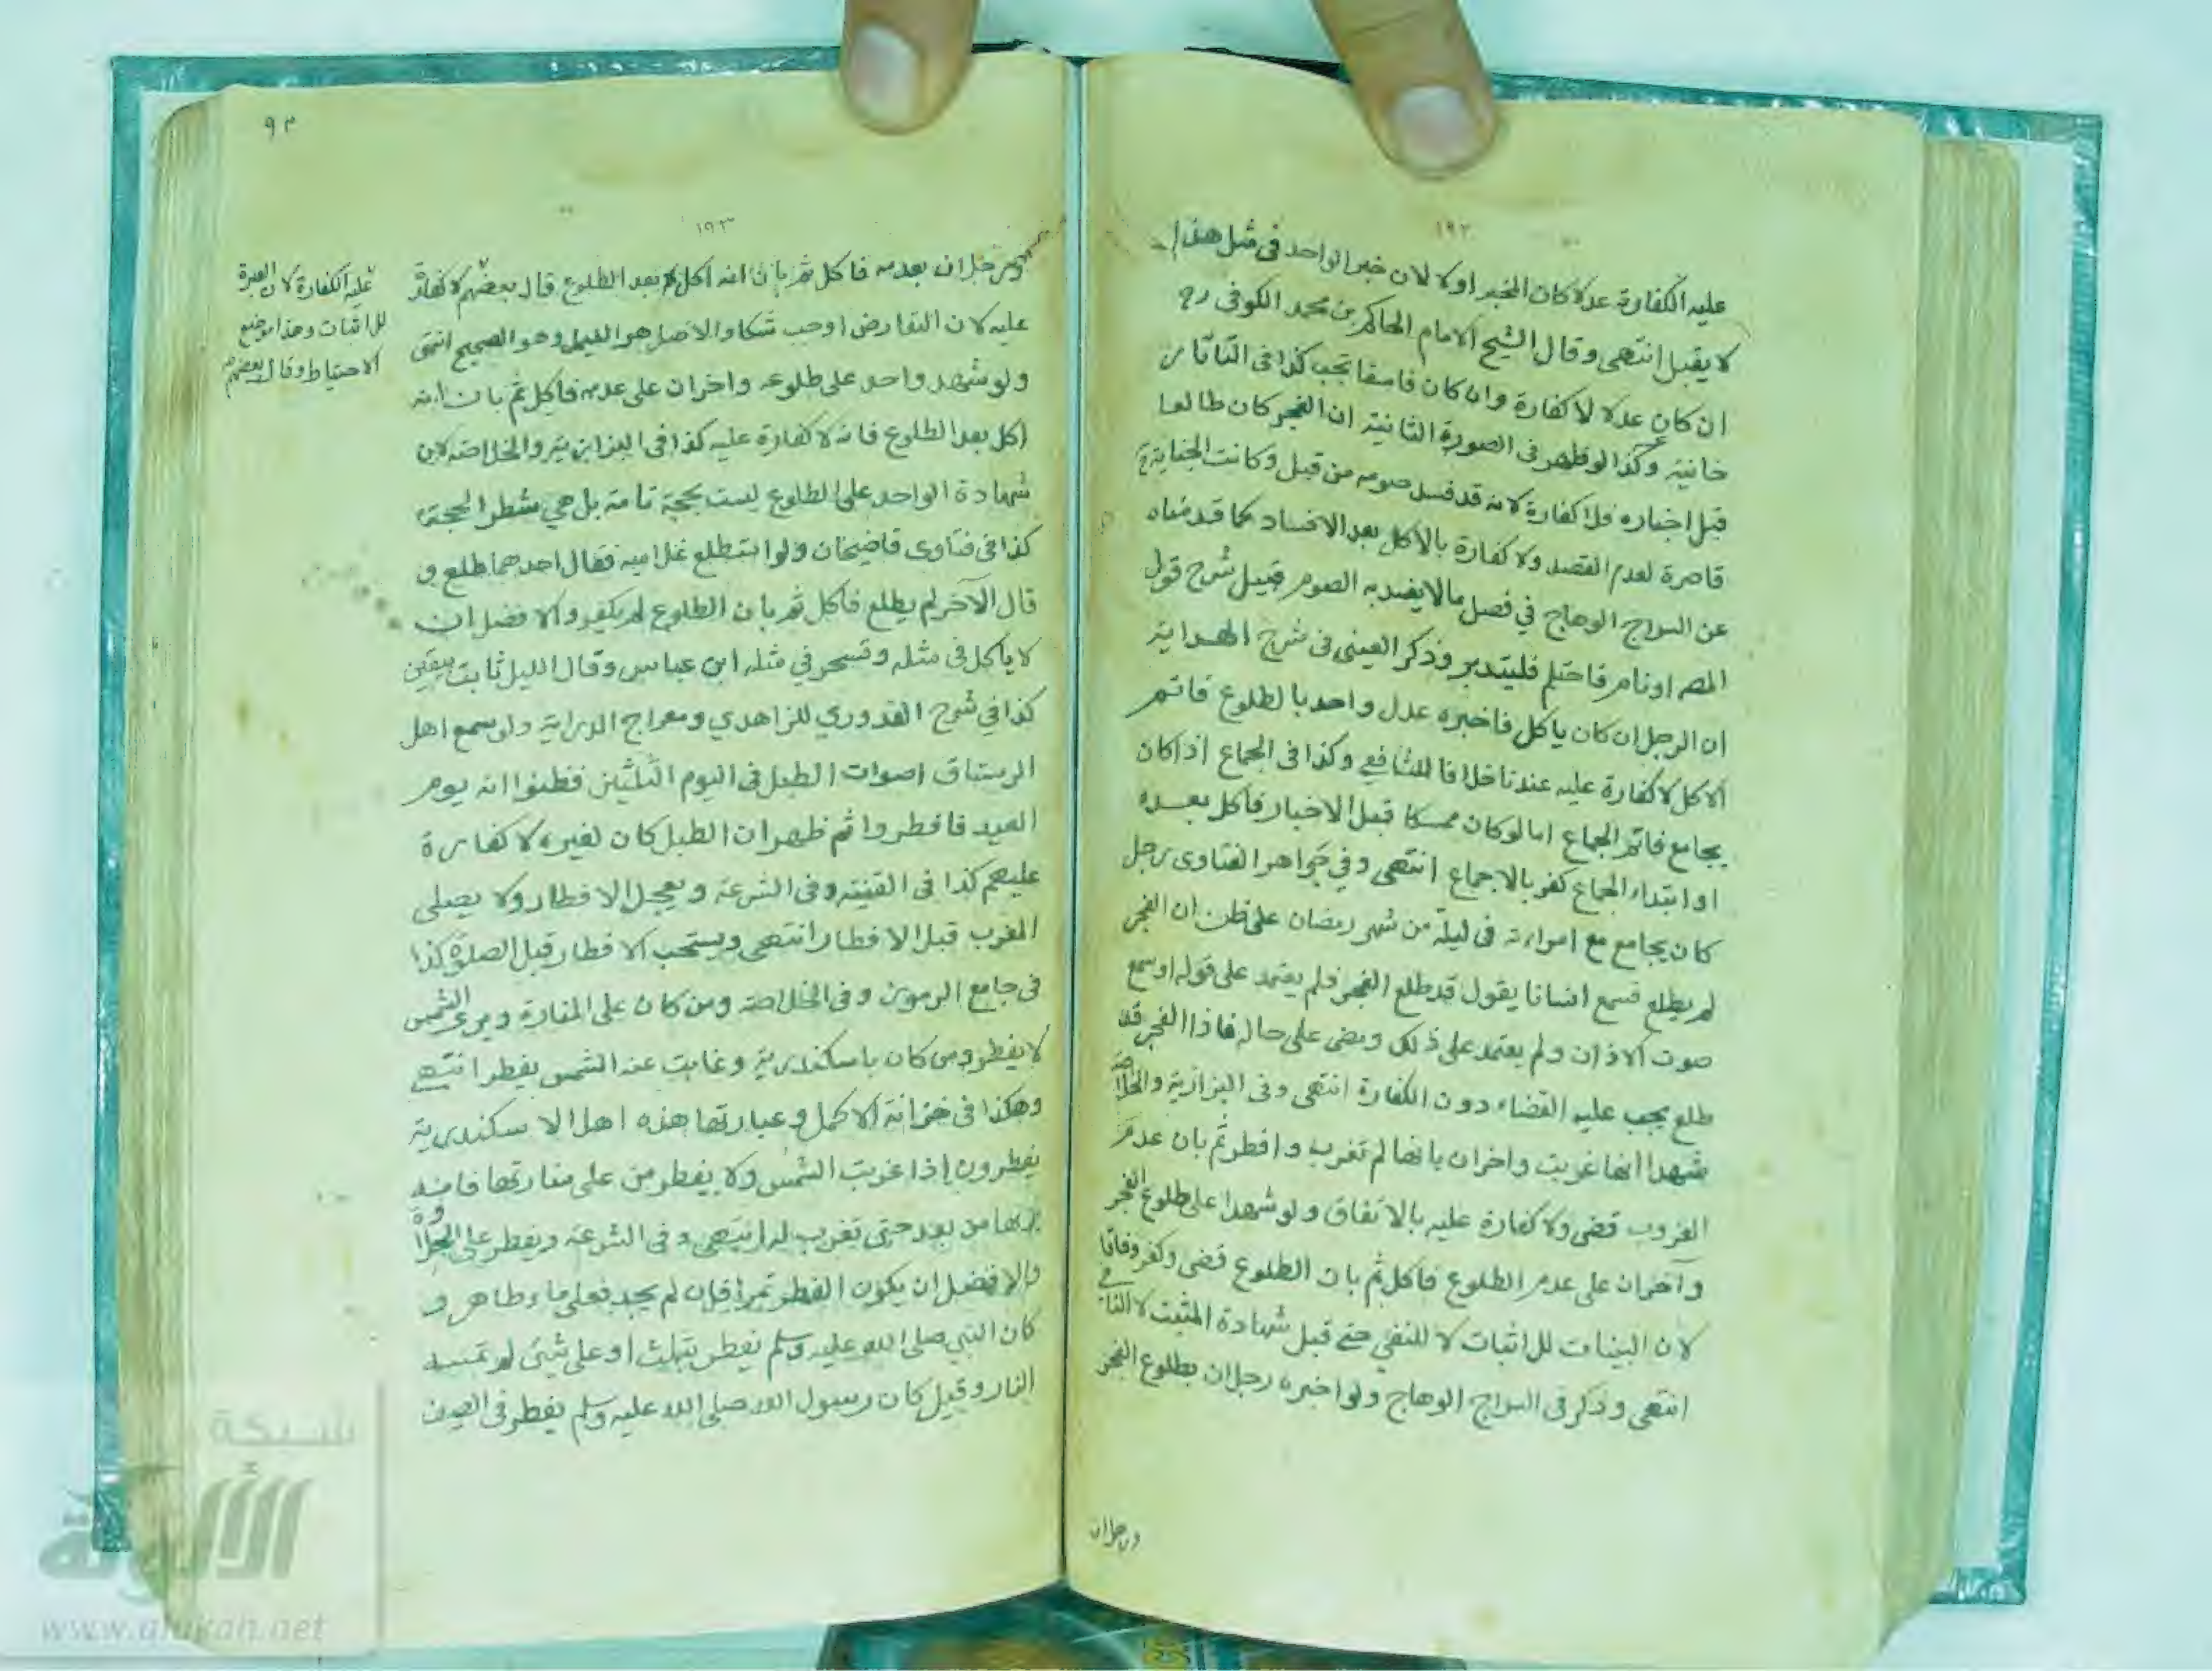 ١٩٢
عليه الكفارة عدلا كان المخبر اولا لان خبر الواحد في مثل هذا
لا يقبل انتهى وقال الشيخ الامام الحاكم بن محمد الكوفي رح
ان كان عدلا لا كفارة وان كان فاسقا تجب كذا في التاتار
خانية وكذا لو ظهر في الصورة الثانية ان الفجر كان طالعا
قبل اخباره فلا كفارة لانه قد فسد صومه من قبل وكانت الجناية
قاصرة لعدم القصد ولا كفارة بالاكل بعد الافساد كما قدمناه
عن السراج الوهاج في فصل مالا يفسد به الصوم قبيل شرح قول
المصـ او نام فاحتلم فليتدبر وذكر العيني في شرح الهداية
ان الرجل ان كان ياكل فاخبره عدل واحد بالطلوع فاتم
الاكل لا كفارة عليه عندنا خلافا للشافعي وكذا في الجماع اذا كان
يجامع فاتم الجماع اما لو كان ممسكا قبل الاخبار فاكل بعده
او ابتداء الجماع كفر بالاجماع انتهى وفي جواهر الفتاوى رجل
كان يجامع مع امراءته في ليلة من شهر رمضان على ظن ان الفجر
لم يطلع فسمع انسانا يقول قد طلع الفجر فلم يعتمد على قوله او سمع
صوت الاذان ولم يعتمد على ذلك ومضى على حاله فاذا الفجر قد
طلع يجب عليه القضاء دون الكفارة انتهى وفي البزازية والخلاصة
شهدا انها غربت واخران بانها لم تغرب وافطر ثم بان عدم
الغروب قضى ولا كفارة عليه بالاتفاق ولو شهدا على طلوع الفجر
وآخران على عدم الطلوع فاكل ثم بان الطلوع قضى وكفر وفاقا
لان البينات للاثبات لا للنفي حتى قبل شهادة المثبت لا النافي
انتهى وذكر في السراج الوهاج ولو اخبره رجلان بطلوع الفجر
ورجلان
٩٣
١٩٣
ورجلان بعدمه فاكل ثم بان انه اكل بعد الطلوع قال بعضهم لا كفارة
عليه لان التعارض اوجب شكا والاصل هو الليل وهو الصحيح انتهى
ولو شهد واحد على طلوعه واخران على عدمه فاكل ثم بان انه
اكل بعد الطلوع فانه لا كفارة عليه كذا في البزازية والخلاصة لان
شهادة الواحد على الطلوع ليست بحجة تامة بل هي شطر الحجة
كذا في فتاوى قاضيخان ولو استطلع غلاميه فقال احدهما طلع و
قال الآخر لم يطلع فاكل ثم بان الطلوع لم يكفر والافضل ان
لا ياكل في مثله وتسحر في مثله ابن عباس وقال الليل ثابت بيقين
كذا في شرح القدوري للزاهدي ومعراج الدراية ولو سمع اهل
الرستاق اصوات الطبل في اليوم الثلثين فظنوا انه يوم
العيد فافطروا ثم ظهر ان الطبل كان لغيره لا كفارة
عليهم كذا في القنية وفي الشرعة ويعجل الافطار ولا يصلي
المغرب قبل الافطار انتهى ويستحب الافطار قبل الصلوة كذا
في جامع الرموز وفي الخلاصة ومن كان على المنارة ويرى الشمس
لا يفطر ومن كان باسكندرية وغابت عنه الشمس يفطر انتهى
وهكذا في خزانة الاكمل وعبارتها هذه اهل الاسكندرية
يفطرون اذا غربت الشمس ولا يفطر من على منارتها فانه
يراها من بعد حتى تغرب له انتهى وفي الشرعة ويفطر على الحلاوة
والافضل ان يكون الفطر تمرا فان لم يجد فعلى ماء طاهر و
كان النبي صلى الله عليه وسلم يفطر بثلث او على شئ لم تمسه
النار وقيل كان رسول الله صلى الله عليه وسلم يفطر في الصيف
عليه الكفارة لان العبرة
للاثبات وهذا موضع
الاحتياط وقال بعضهم
شبكة
الألوكة
www.alukah.net